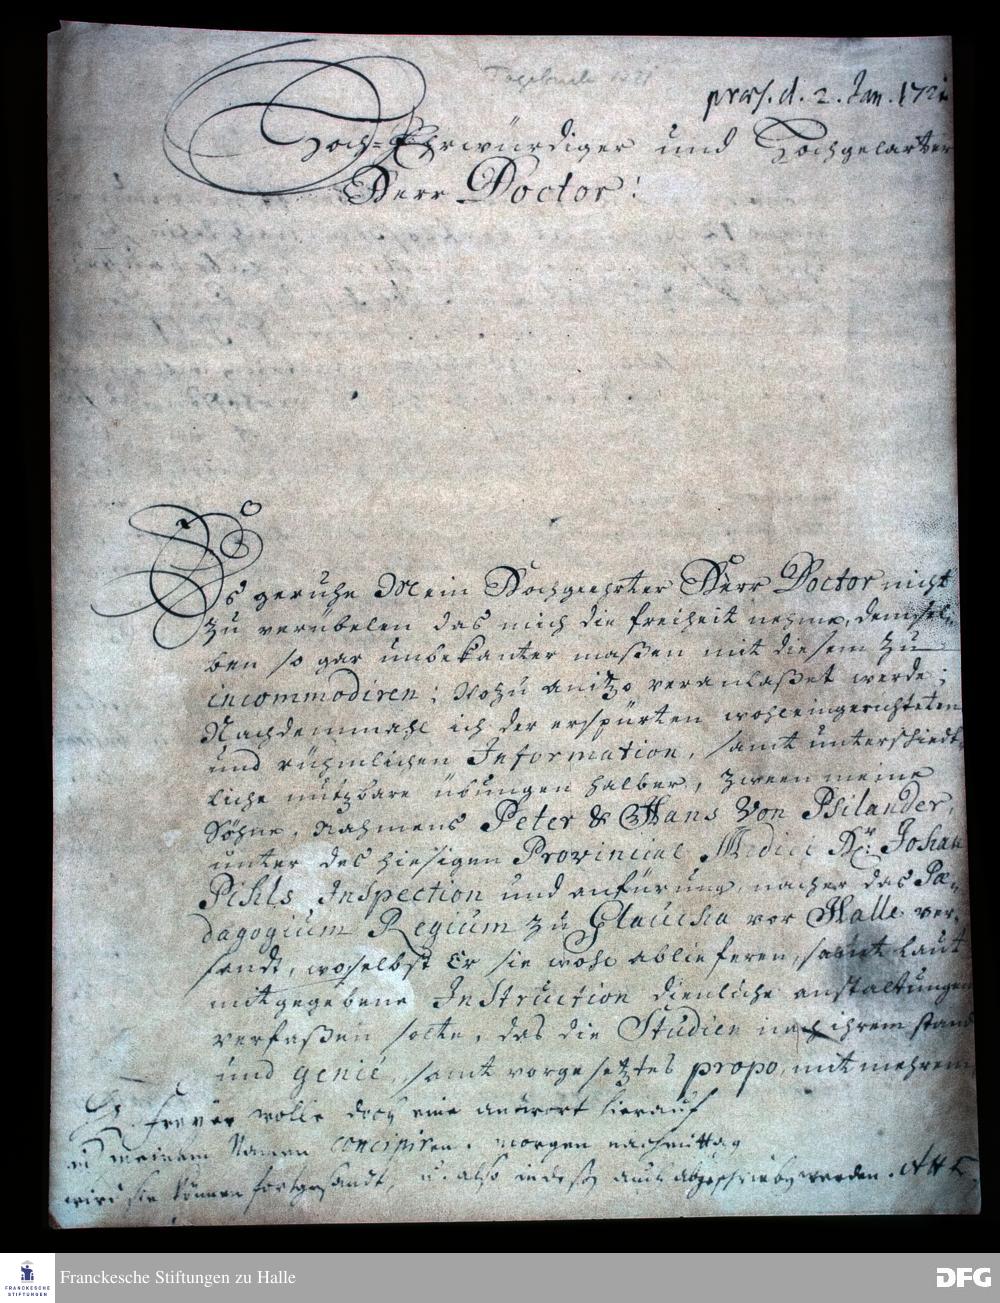 Tagebuch 1721
præs. d. 2. Jan. 1721
Hoch-Ehrwürdiger und Hochgelarter
Herr Doctor!
Es geruhe Mein Hochgeehrter Herr Doctor nicht
zu verübelen das mich die freiheit nehme, demsel-
ben so gar unbekanter maßen mit diesem zu
incommodiren; Wozu anitzo veranlaßet werde;
Nachdemmahl ich der erspürten wohleingerichteten
und rühmlichen Information, samt unterschied-
liche nutzbare übungen halber, zween meine
Söhne, Nahmens Peter & Hans Von Psilander,
unter des hiesigen Provincial Medici Dr. Johan
Pihls Inspection und anfürung, nacher das Pæ-
dagogium Regium zu Glaucha vor Halle ver-
sandt, woselbst Er sie wohl abliefern, samt laut
mitgegebene Instruction dienliche anstaltungen
verfaßen solte, das die Studien nach ihrem stand
und genie, samt vorgesetztes propo, mit mehrem
H. Freyer wolle doch eine antwort hierauf
in meinem Namen concipiren. morgen nachmittag
wird sie können fortgesandt, u. also indeß auch abgeschrieben werden. AHF
Franckesche Stiftungen zu Halle
FRANCKESCHE
STIFTUNGEN
DFG